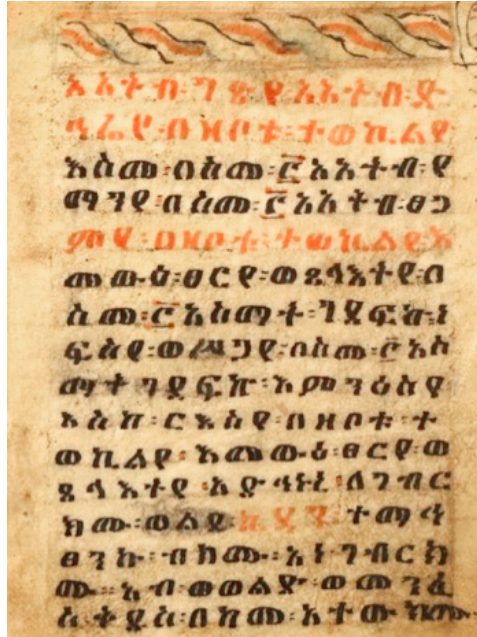 አአትብ፡ገጽየ፡አአትብ፡ድ
ኅሬየ፡በዝቦቱ፡ተወኪልየ
እስመ፡በስመ፡፫አአትብ፡የ
ማንየ፡በስመ፡፫አአትብ፡ፀጋ
ምየ፡በዝቦቱ፡ተወኪልየ፡እ
መውዕ፡ፀርየ፡ወጸላእትየ፡በ
ስመ፡፫አስማት፡ንፂፍኩ፡ነ
ፍስየ፡ወሥጋየ፡በስመ፡፫አስ
ማት፡ንፂፍኩ፡እምንዕስየ
እስከ፡ርእስየ፡በዝቦቱ፡ተ
ወኪልየ፡እመውዕ፡ፀርየ፡ወ
ጸላእትየ፡አድኅነኒ፡ለገብር
ክሙ፡ወልደ፡ተማኅ
ፀንኩ፡ብክሙ፡አነ፡ገብርክ
ሙ፡አብ፡ወወልድ፡ወመንፈ
ስ፡ቅዱስ፡በከመ